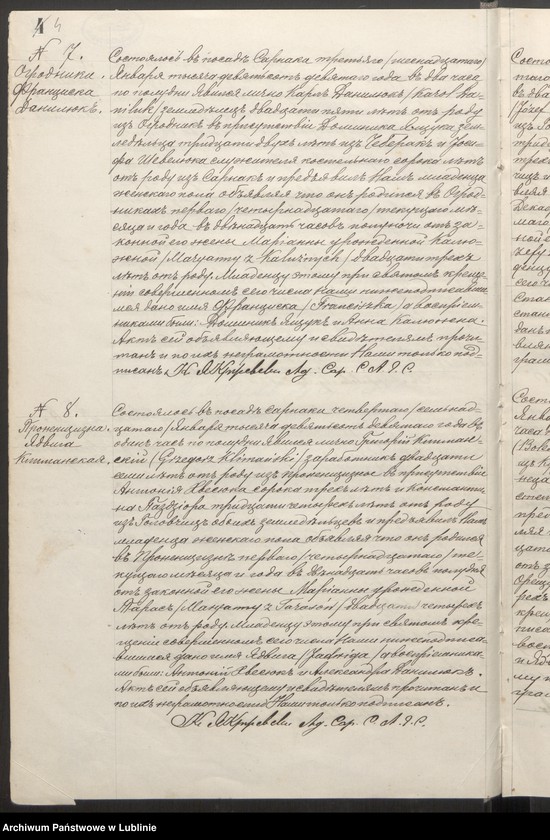 4
№ 7.
Огродника.
Франциска
Данилюкъ.
Состоялось въ посадѣ Сарнака третьяго /шестнадцатаго/
Января тысяча девятьсотъ девятаго года въ два часа
по полудни. Явился лично Карлъ Данилюкъ /Karol Da-
niluk/ земледѣлецъ двадцати пяти лѣтъ отъ роду
изъ Огродникъ въ присутствіи Доминика Ящука зем-
ледѣльца тридцати двухъ лѣтъ изъ и Іози-
фа служителя костельнаго сорока лѣтъ
отъ роду изъ Сарнакъ и предъявилъ Намъ младенца
женскаго пола объявляя что онъ родился въ Огрод-
никахъ перваго /четырнадцатаго/ текущаго мѣ-
сяца и года въ двѣнадцать часовъ полуночи отъ за-
конной его жены Маріанны урожденной Калю-
жной /Maryanny z Kaliżnych/ двадцати трехъ
лѣтъ отъ роду. Младенцу этому при святомъ креще-
ніи совершенномъ сего числа Нами нижеподписав-
шемся дано имя Франциска /Franciszka/ а воспріем-
никами были: Доминикъ Ящукъ и Анна Калюжна.
Актъ сей объявляющему и свидѣтелямъ прочи-
танъ и по ихъ неграмотности Нами только под-
писанъ. К. Ад. Сар. С. А. Г. С.
№ 8.
Ядвига
Состоялось въ посадѣ Сарнаки четвертаго /семьнад-
цатаго/ Января тысяча девятьсотъ девятаго года въ
одинъ часъ по полудни. Явился лично Григорій
/Grzegorz заработникъ двадцати
семи лѣтъ отъ роду изъ въ присутствіи
Антонія Хвесюка сорока трехъ лѣтъ и Константи-
на Паздзіора тридцати четырехъ лѣтъ отъ роду
изъ обоихъ земледѣльцевъ и предъявилъ Намъ
младенца женскаго пола объявляя что онъ родился
въ перваго /четырнадцатаго/ те-
кущаго мѣсяца и года въ двѣнадцать часовъ полудня
отъ законной его жены Маріанны урожденной
Тарасъ /Maryanny z Tarasów/ двадцати четырехъ
лѣтъ отъ роду. Младенцу этому при святомъ кре-
щеніи совершенномъ сего числа Нами нижеподписа-
вшимся дано имя Ядвига /Jadwiga/ а воспріемника-
ми были: Антоній Хвесюкъ и Александра Данилюкъ.
Актъ сей объявляющему и свидѣтелямъ прочитанъ и
по ихъ неграмотности Нами только подписанъ.
К. Ад. Сар. С. А. Г. С.
Archiwum Państwowe w Lublinie